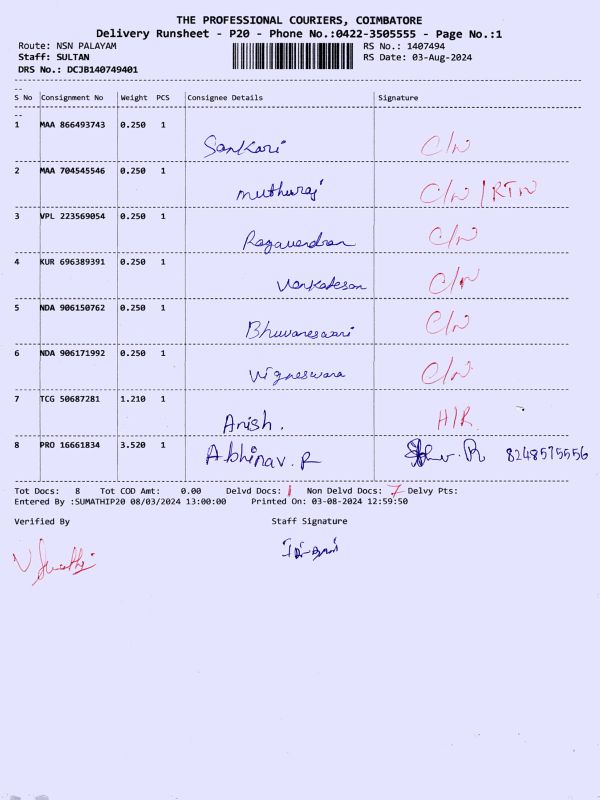 THE PROFESSIONAL COURIERS, COIMBATORE
Delivery Runsheet - P20 - Phone No.:0422-3505555 - Page No.:1
Route: NSN PALAYAM RS No.: 1407494
Staff: SULTAN RS Date: 03-Aug-2024
DRS No.: DCJB140749401
S No Consignment No Weight PCS Consignee Details Signature
1 MAA 866493743 0.250 1
Sankari C/N
2 MAA 704545546 0.250 1
Muthuraj C/N / RTN
3 VPL 223569054 0.250 1
Ragavendran C/N
4 KUR 696389391 0.250 1
Venkatesan C/N
5 NDA 906150762 0.250 1
Bhuvaneswari C/N
6 NDA 906171992 0.250 1
Vigneswara C/N
7 TCG 50687281 1.210 1
Anish. H/R
8 PRO 16661834 3.520 1
Abhinav. R 8248575556
Tot Docs: 8 Tot COD Amt: 0.00 Delvd Docs: 1 Non Delvd Docs: 7 Delvy Pts:
Entered By :SUMATHIP20 08/03/2024 13:00:00 Printed On: 03-08-2024 12:59:50
Verified By Staff Signature